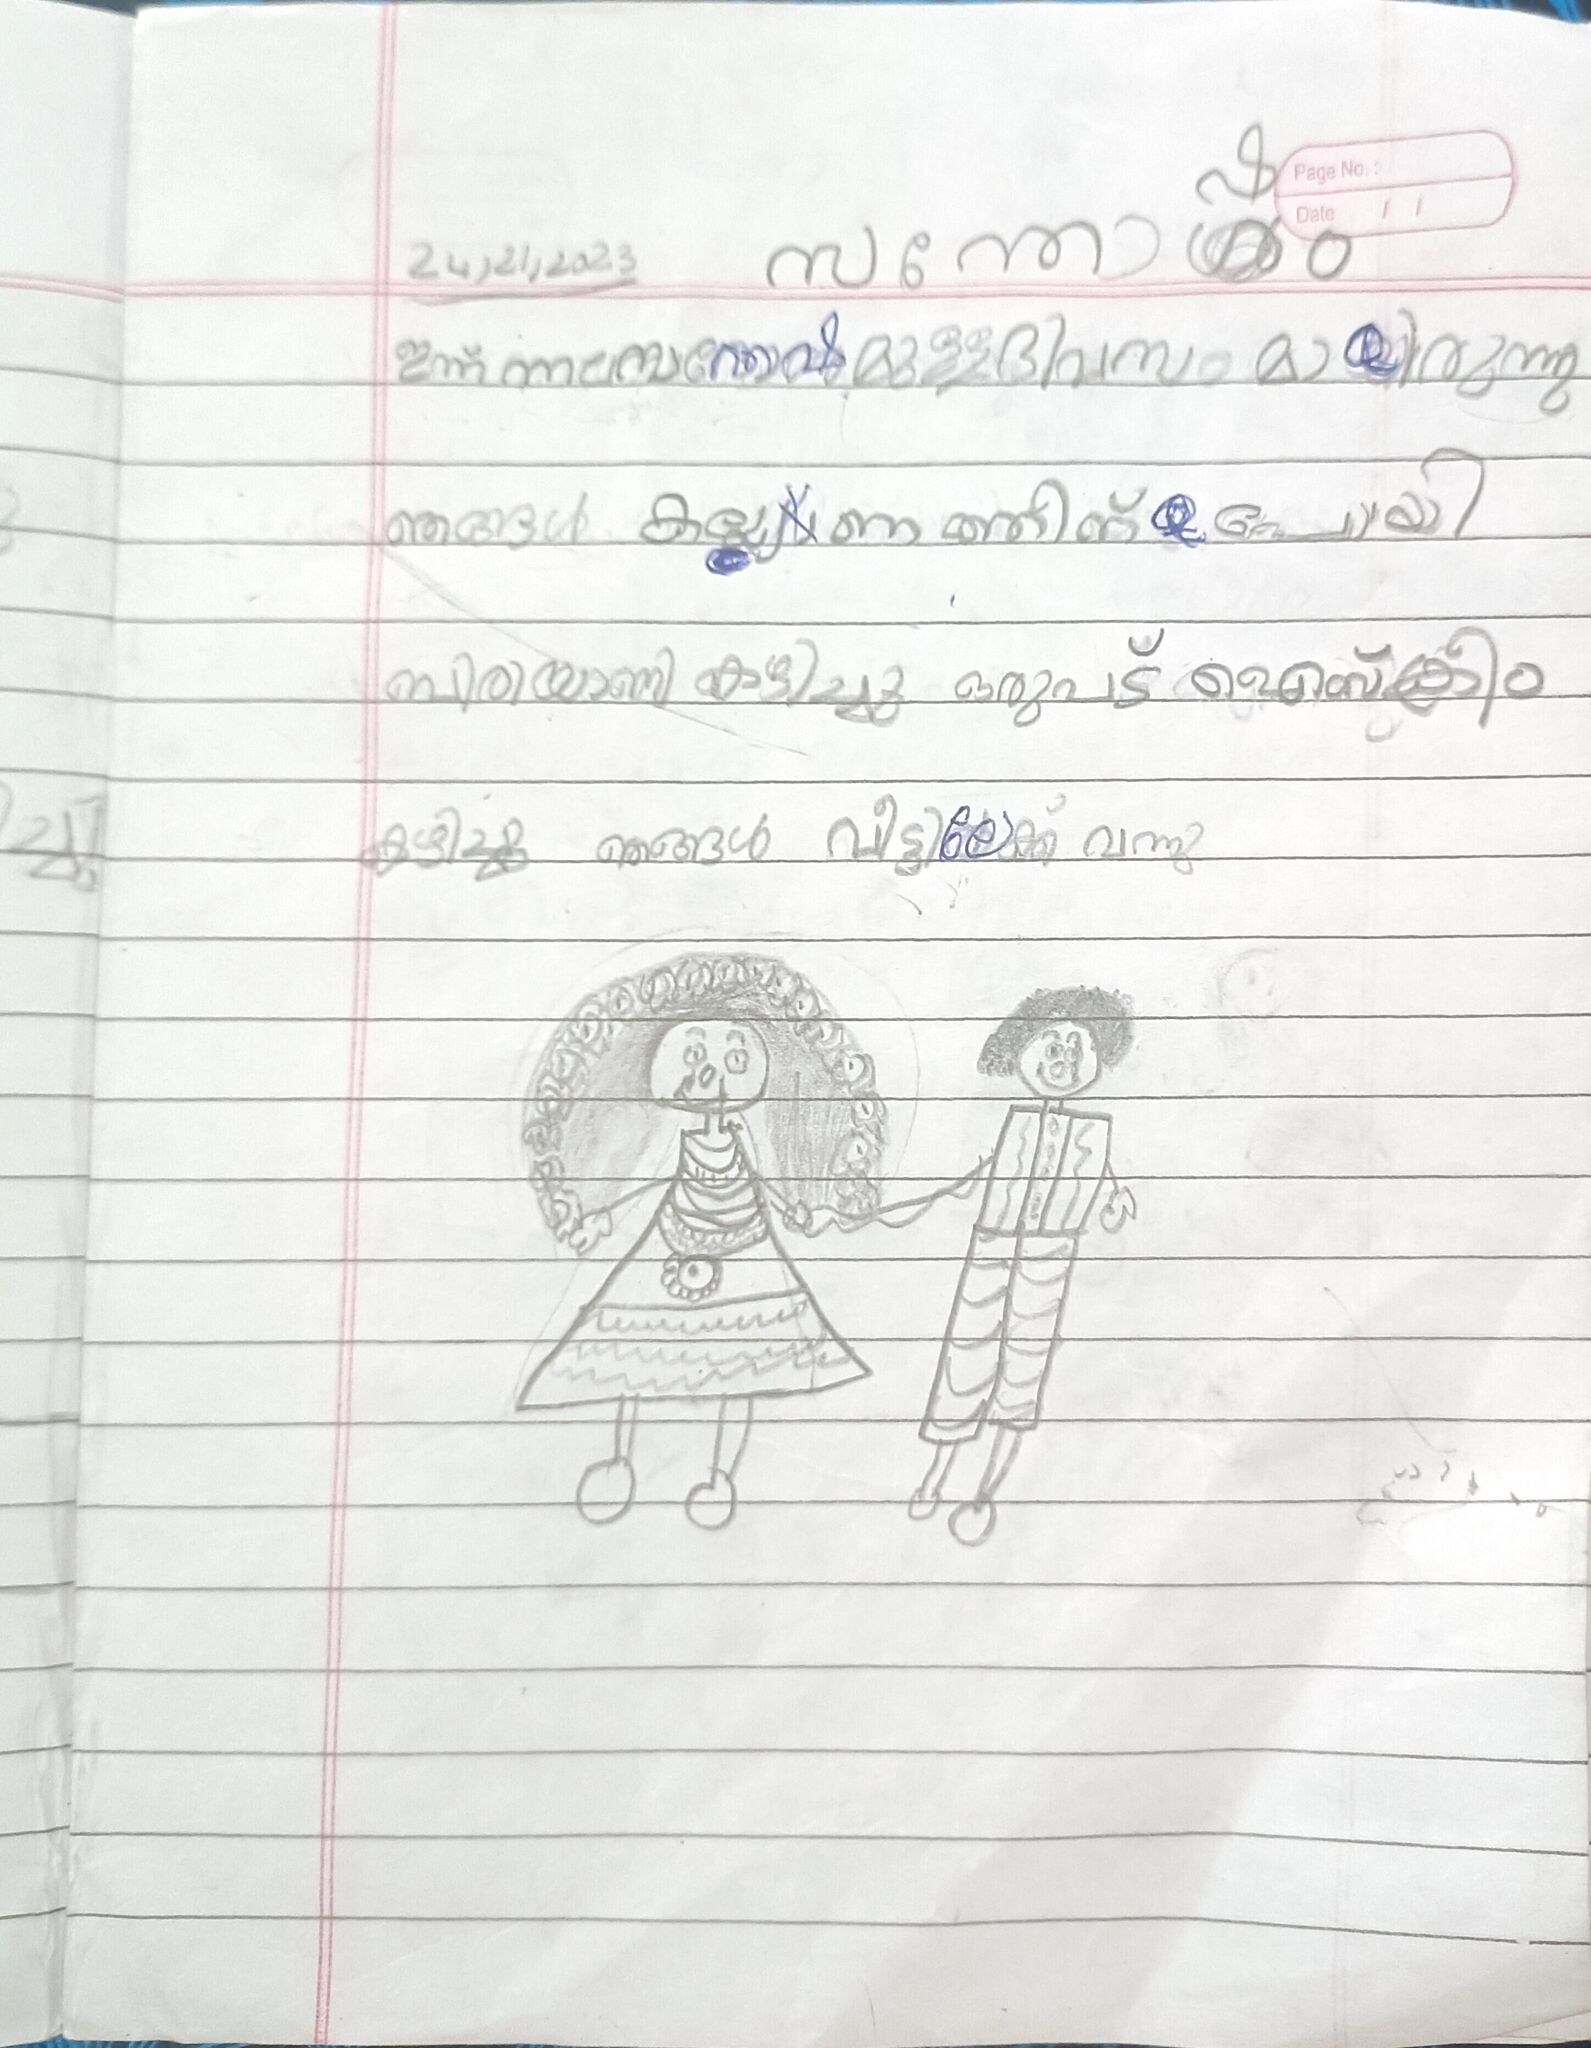 Page No. :
Date / /
24,21,2023 സന്തോഷം
ഇന്ന് നല്ല സന്തോഷമുള്ള ദിവസം മായിരുന്നു
ഞങ്ങൾ കല്യണത്തിന് പോയി
ബിരിയാണി കഴിച്ചു ഒരുപട് ഐസ്ക്രീം
കഴിച്ചു ഞങ്ങൾ വീട്ടിലേക്ക് വന്നു